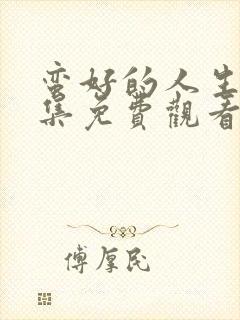 蛮好的人生
集免費觀看
傅厚民